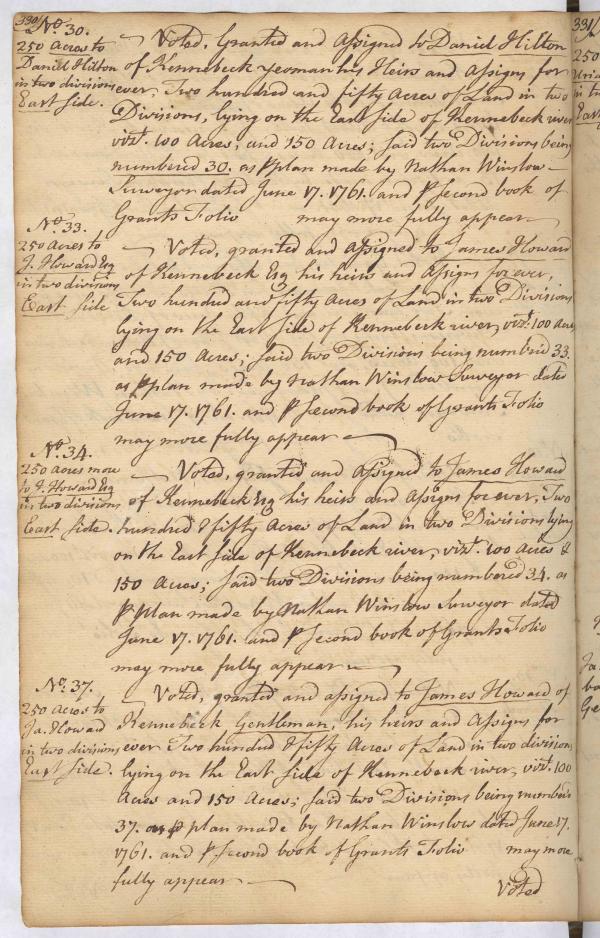 330/
No. 30.
250 Acres to
Daniel Hilton
in two divisions
East side.
Voted, Granted and Assigned to Daniel Hilton
of Kennebeck yeoman his Heirs and Assigns for
ever, Two hundred and fifty Acres of Land in two
Divisions, lying on the East side of Kennebeck river
vizt. 100 Acres, and 150 Acres; said two Divisions being
numbered 30. as p plan made by Nathan Winslow
Surveyor dated June 17. 1761. and p second book of
Grants Folio may more fully appear
No. 33.
250 Acres to
J. Howard Esq
in two divisions
East side
Voted, granted and assigned to James Howard
of Kennebeck Esq his heirs and assigns forever,
Two hundred and fifty Acres of Land in two Divisions
lying on the East side of Kennebeck river, vizt. 100 Acres
and 150 Acres; said two Divisions being numbered 33.
as p plan made by Nathan Winslow Surveyor dated
June 17. 1761. and p second book of Grants Folio
may more fully appear
No. 34.
250 acres more
to J. Howard Esq
in two divisions
East side.
Voted, granted and assigned to James Howard
of Kennebeck Esq his heirs and assigns forever, Two
hundred & fifty Acres of Land in two Divisions lying
on the East side of Kennebeck river, vizt. 100 Acres &
150 Acres; said two Divisions being numbered 34. as
p plan made by Nathan Winslow Surveyor dated
June 17. 1761. and p second book of Grants Folio
may more fully appear
No. 37.
250 acres to
Ja. Howard
in two divisions
East side.
Voted, granted and assigned to James Howard of
Kennebeck Gentleman, his heirs and Assigns for
ever Two hundred & fifty Acres of Land in two divisions
lying on the East side of Kennebeck river, vizt. 100
Acres and 150 Acres; said two Divisions being numbered
37. as p plan made by Nathan Winslow dated June 17.
1761. and p second book of Grants Folio may more
fully appear
Voted
331/
250